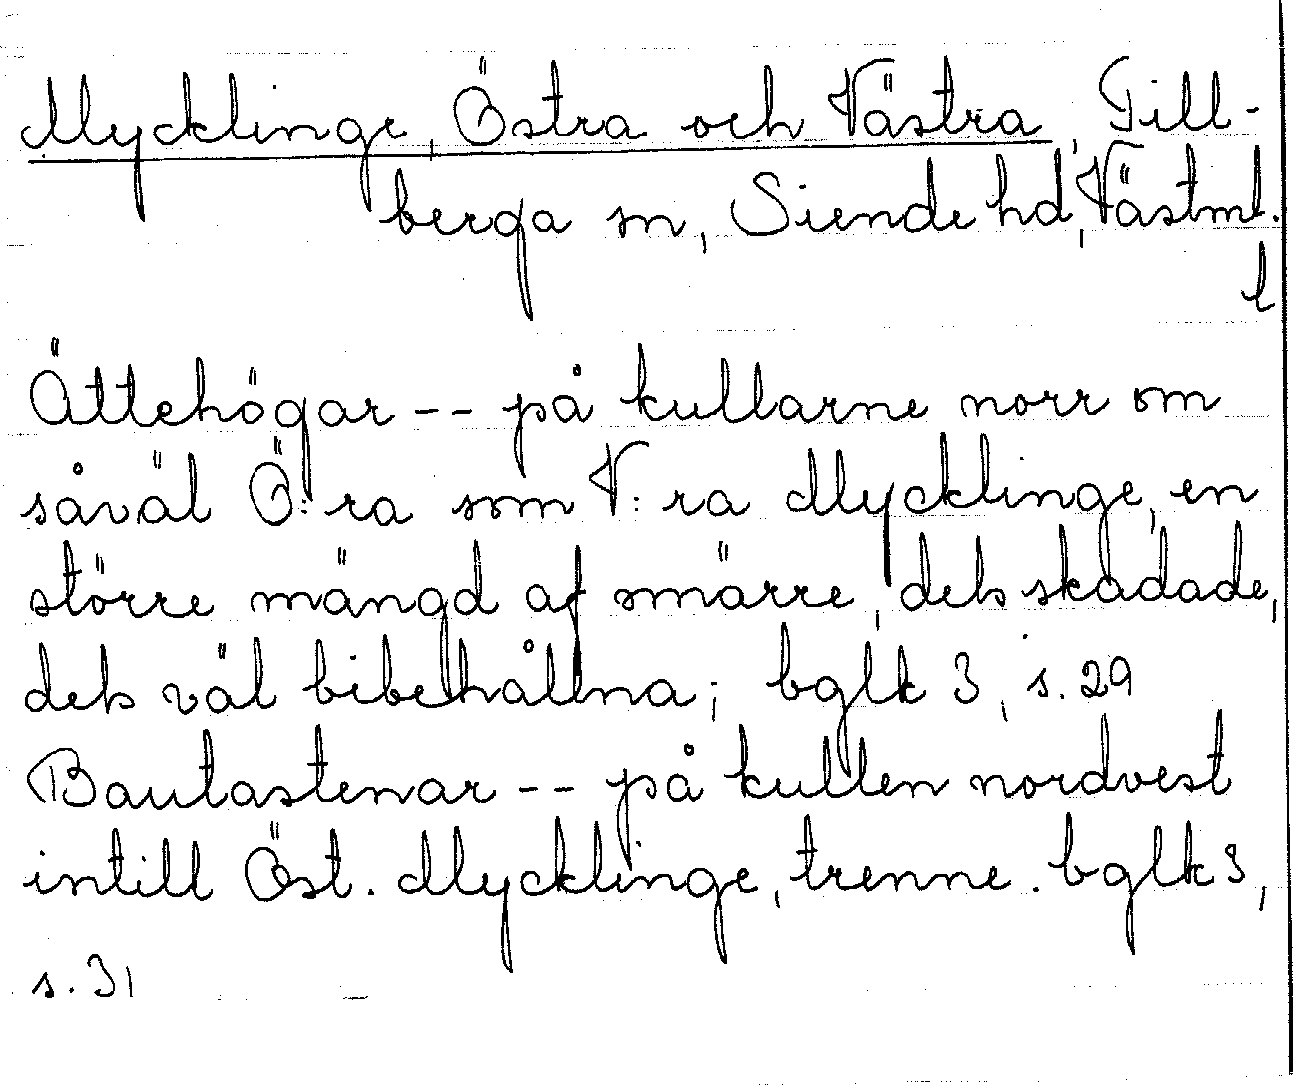 Mycklinge, Östra och Västra, Till-
berga sn, Siende hd, Västml.
l
Ättehögar -- på kullarne norr om
såväl Ö:ra som V:ra Mycklinge, en
större mängd af smärre, dels skadade,
dels väl bibehållna; bglk 3, s. 29
Bautastenar -- på kullen nordvest
intill Öst. Mycklinge, trenne. bglk 3,
s. 31